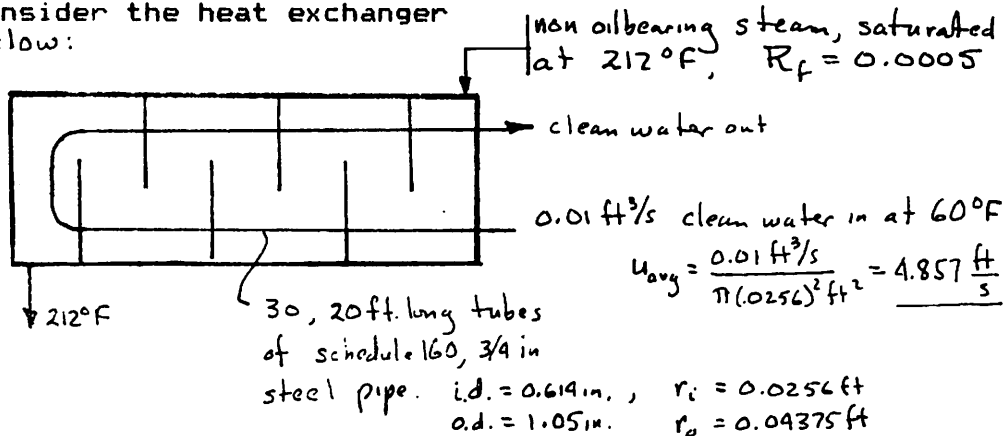 nsider the heat exchanger
low:
non oilbearing steam, saturated
at 212°F, R_f = 0.0005
clean water out
0.01 ft³/s clean water in at 60°F
u_avg = 0.01 ft³/s / π(.0256)² ft² = 4.857 ft/s
212°F
30, 20 ft. long tubes
of schedule 160, 3/4 in
steel pipe. i.d. = 0.614 in., r_i = 0.0256 ft
o.d. = 1.05 in. r_o = 0.04375 ft